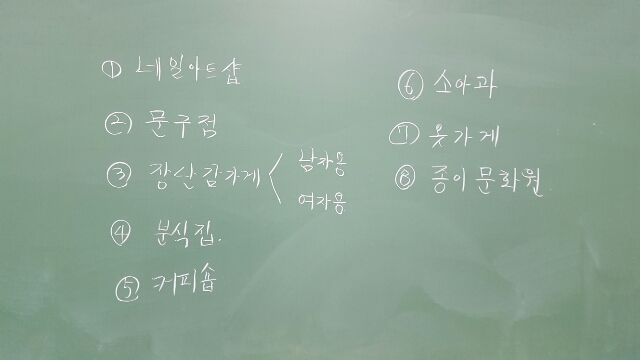 ① 네일아트샵
② 문구점
③ 장난감가게 < 남자용
여자용
④ 분식집.
⑤ 커피숍
⑥ 소아과
⑦ 옷가게
⑧ 종이문화원